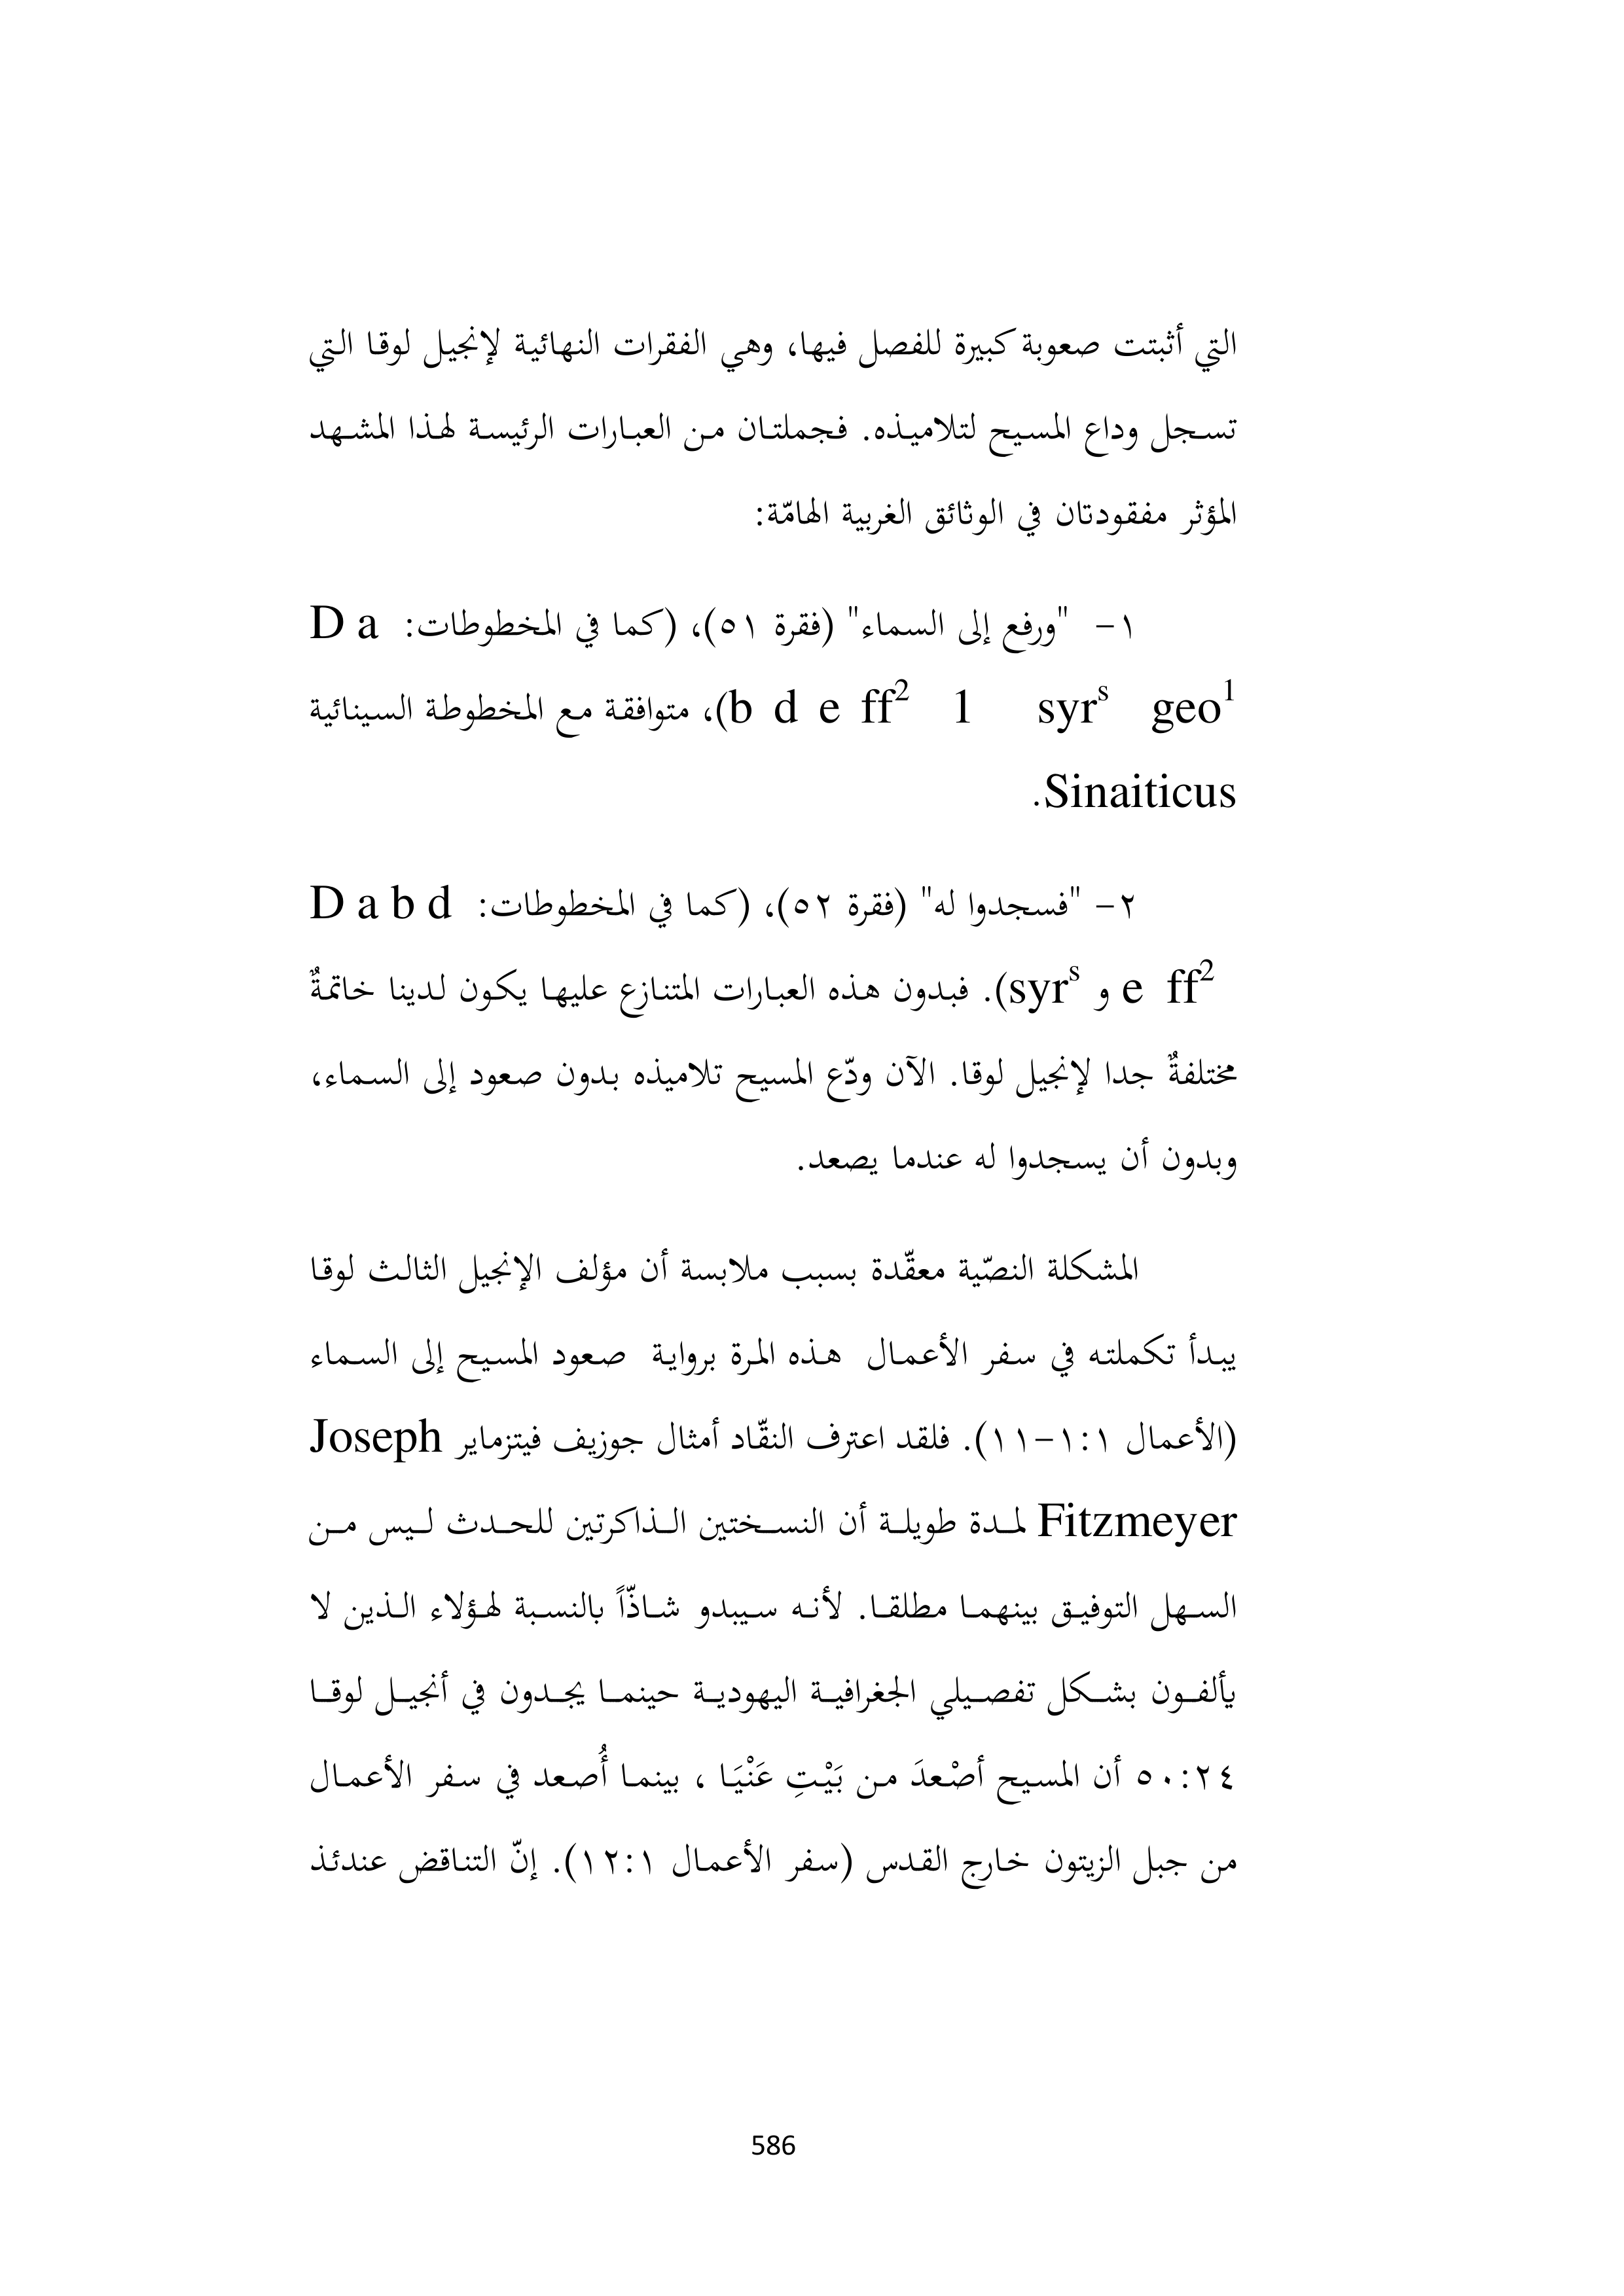 التي أثبتت صعوبة كبيرة للفصل فيها، وهي الفقرات النهائية لإنجيل لوقا التي
تسجل وداع المسيح لتلاميذه. فجملتان من العبارات الرئيسة لهذا المشهد
المؤثر مفقودتان في الوثائق الغربية الهامّة:
١- "ورفع إلى السماء" (فقرة ٥١)، (كما في المخطوطات: D a
b d e ff² 1 syrˢ geo¹)، متوافقة مع المخطوطة السينائية
Sinaiticus.
٢- "فسجدوا له" (فقرة ٥٢)، (كما في المخطوطات: D a b d
e ff² و syrˢ). فبدون هذه العبارات المتنازع عليها يكون لدينا خاتمةٌ
مختلفةٌ جدا لإنجيل لوقا. الآن ودّع المسيح تلاميذه بدون صعود إلى السماء،
وبدون أن يسجدوا له عندما يصعد.
المشكلة النصّية معقّدة بسبب ملابسة أن مؤلف الإنجيل الثالث لوقا
يبدأ تكملته في سفر الأعمال هذه المرة برواية صعود المسيح إلى السماء
(الأعمال ١:١-١١). فلقد اعترف النقّاد أمثال جوزيف فيتزماير Joseph
Fitzmeyer لمدة طويلة أن النسختين الذاكرتين للحدث ليس من
السهل التوفيق بينهما مطلقا. لأنه سيبدو شاذّاً بالنسبة لهؤلاء الذين لا
يألفون بشكل تفصيلي الجغرافية اليهودية حينما يجدون في أنجيل لوقا
٥٠:٢٤ أن المسيح أصْعدَ من بَيْتِ عَنْيَا ، بينما أُصعد في سفر الأعمال
من جبل الزيتون خارج القدس (سفر الأعمال ١٢:١). إنّ التناقض عندئذ
586